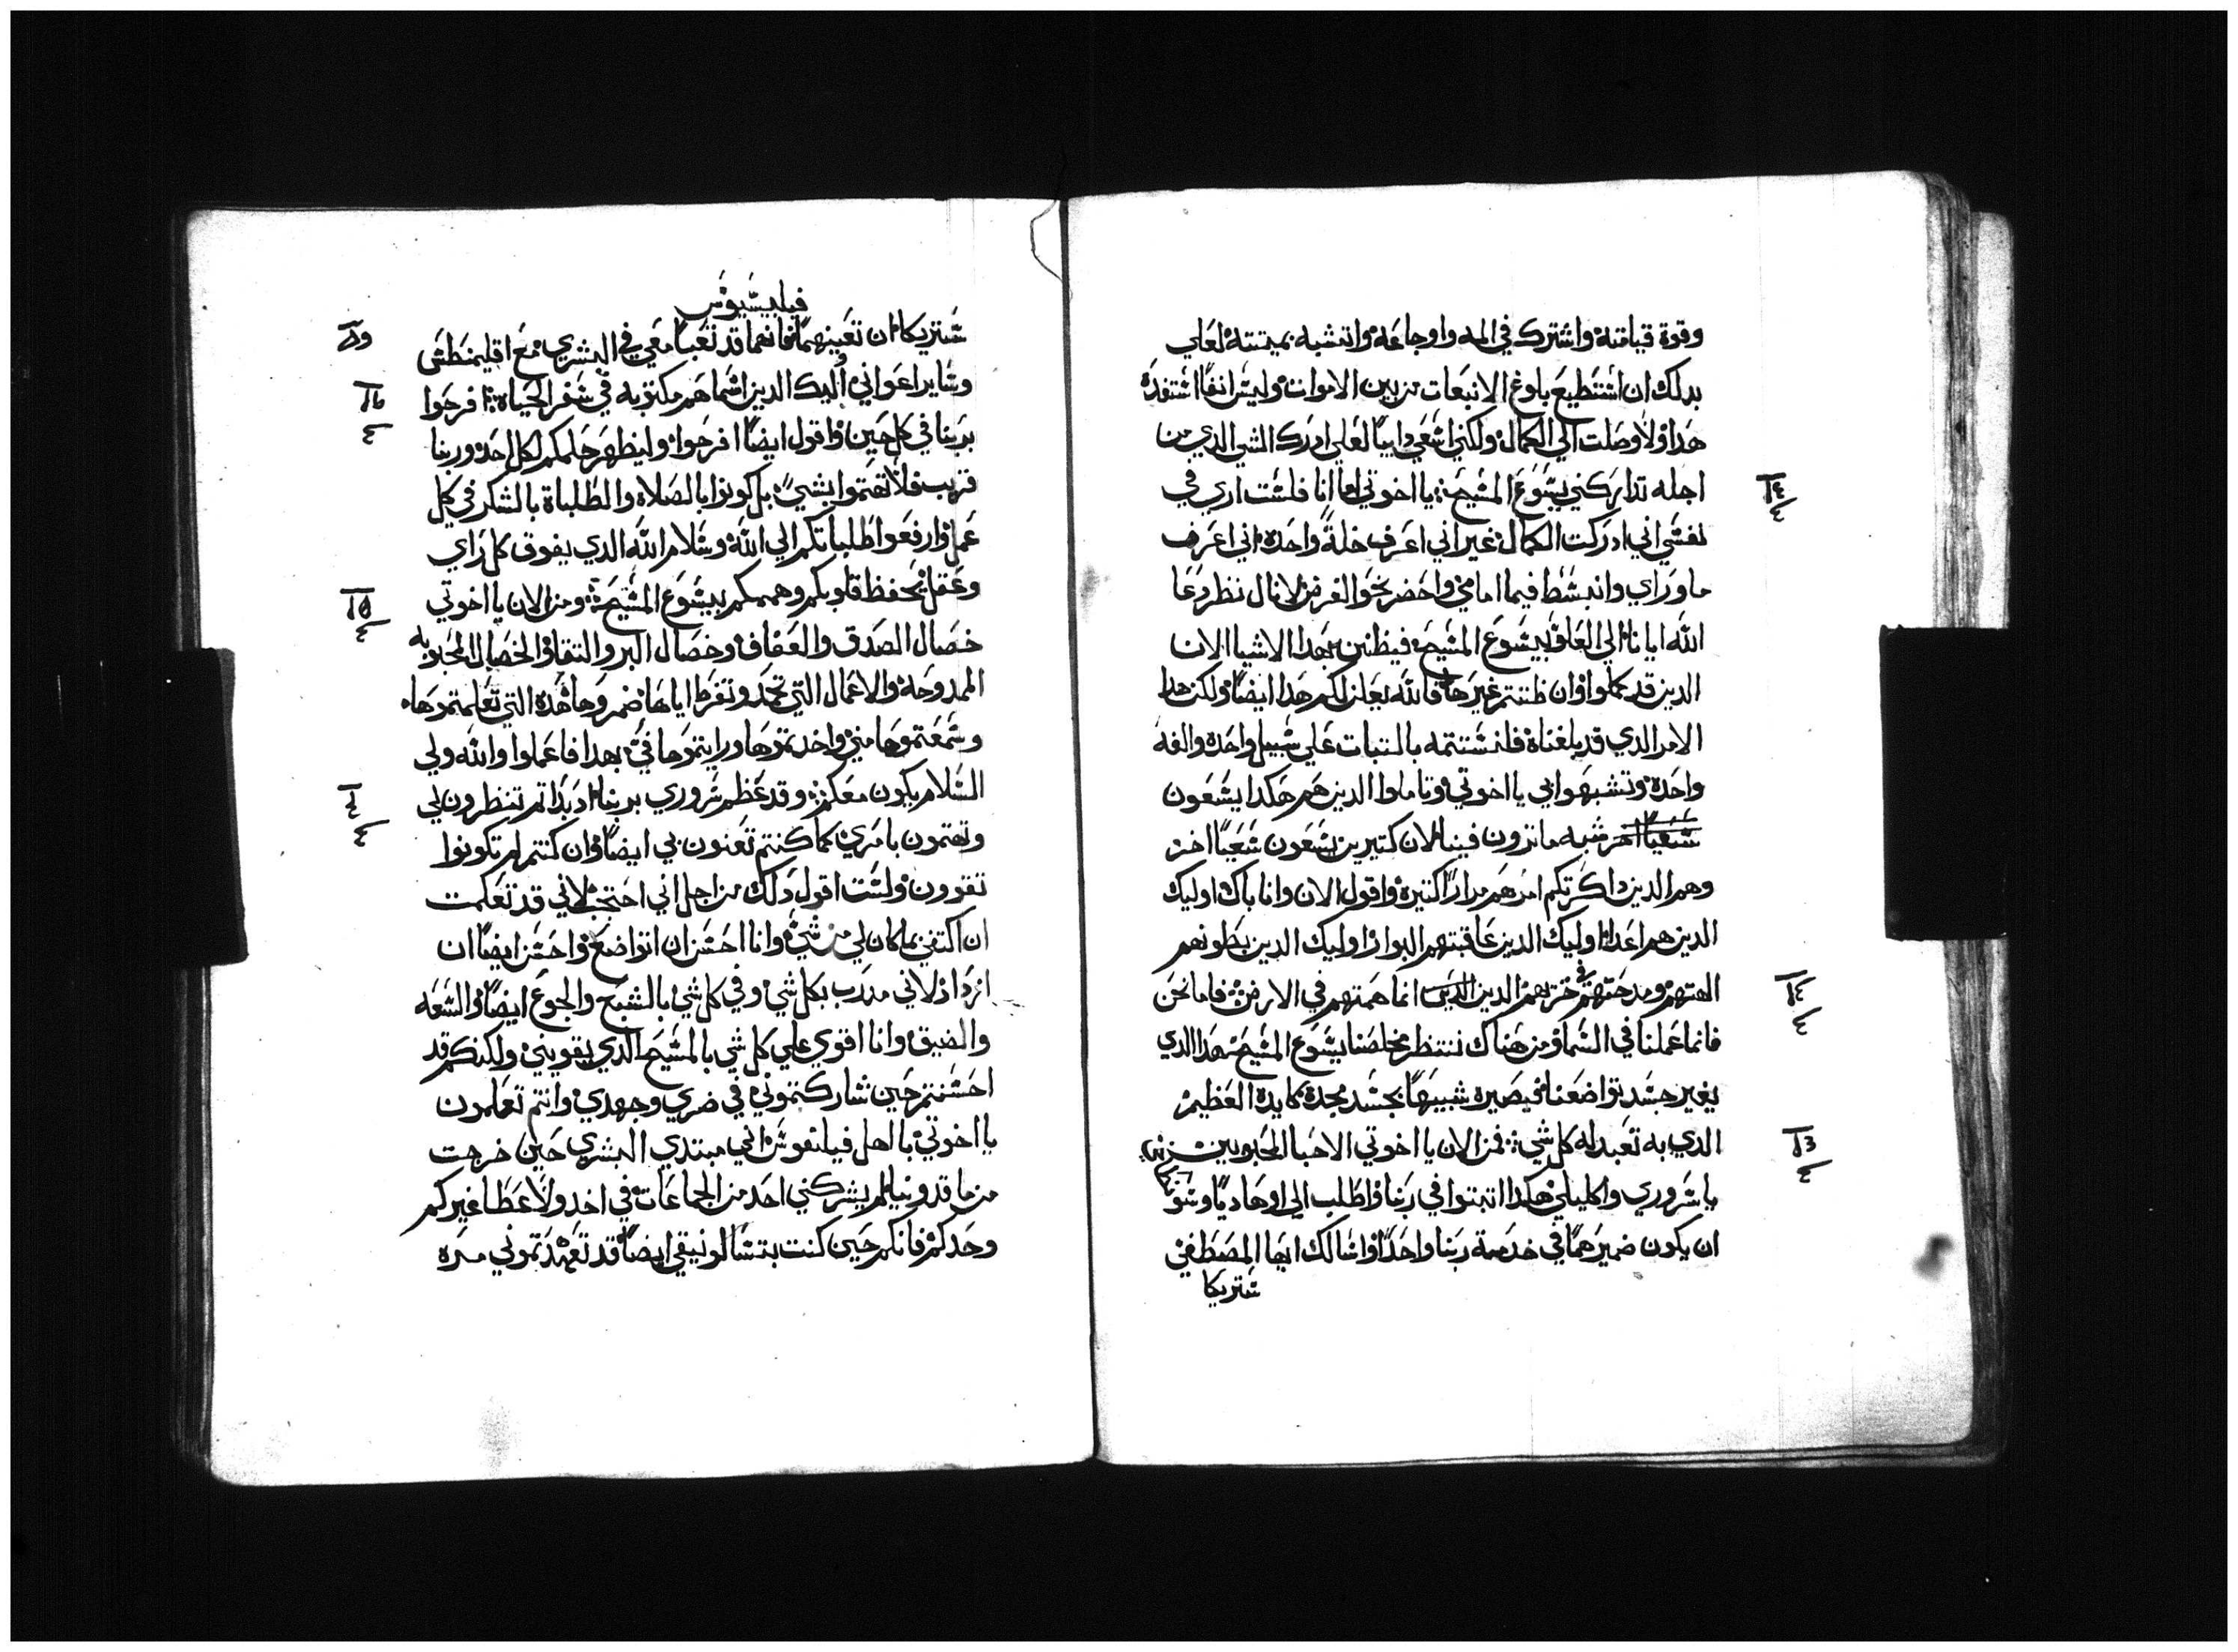 وقوة قيامته واشترك في المه واوجاعه واتشبه بميتته لعلي
بدلك ان استطيع بلوغ الانبعات من بين الاموات وليس انفا استفدة
هدا ولا وصلت الي الكمال ولكني اسعي دايبا لعلي ادرك الشي الدي من
اجله تداركني يسوع المسيح يا اخوتي اما انا فلست اري في
نفسي اني ادركت الكمال غير اني اعرف خلة واحدة اني اعرف
ما وراي وانبسط فيما امامي واحضر نحو الغرض لانال نظر دعا
الله ايانا الي العلو بيسوع المسيح فيظنن بهدا الاشيا الان
الدين قد كملوا وان ظننتم غيرها فالله يعلن لكم هدا ايضا ولكن هدا
الامر الدي قد بلغناه فلنستتمه بالتبات علي سبيل واحدة والفه
واحدة وتشبهوا بي يا اخوتي وتاملوا الدين هم هكدا يسعون
شبه ما ترون فينا لان كتيرين يسعون سعيا اخر
وهم الدين داكرتكم امرهم مرارا كتيرة واقول الان وانا باك اوليك
الدين هم اعدا اوليك الدين عاقبتهم البوار اوليك الدين بطونهم
الهتهم ومدحتهم في خزيهم الدين انما همتهم في الارض فاما نحن
فانما عملنا في السما ومن هناك ننتظر مخلصنا يسوع المسيح هدا الدي
يغير جسد تواضعنا فيصيره شبيها بجسد مجده كايده العظيم
الدي به تعبد له كل شي فمن الان يا اخوتي الاحبا المحبوبين
يا سروري واكليلي هكدا اتبتوا في ربنا واطلب الي اوهاديا وسنو
ان يكون ضميرهما في خدمة ربنا واحدا واسالك ايها المصطفي
شتريكا
فيليبسيوس
شتريكا ان تعينهما فانهما قد تعبا معي في البشري مع اقليمنطس
وساير اعواني اليك الدين اسماهم مكتوبه في سفر الحياة افرحوا
بربنا في كل حين واقول ايضا افرحوا وليظهر حلمكم لكل احد وربنا
قريب فلا تهتموا بشي بل كونوا بالصلاة والطلباة بالشكر في كل
عمل وارفعوا طلباتكم الي الله وسلام الله الدي يفوق كل راي
وعقل يحفظ قلوبكم وهممكم بيسوع المسيح ومن الان يا اخوتي
خصال الصدق والعفاف وخصال البر والتقا والخصال المحبوبه
الممدوحة والاعمال التي تحمد وتقرظ اياها ضمروها هده التي تعلمتموها
وسمعتموها مني واخدتموها ورايتموها في بهدا فاعملوا والله ولي
السلام يكون معكم وقد عظم سروري بربنا اد بداتم تنظرون لي
وتهتمون بامري كما كنتم تعنون بي ايضا وان كنتم لم تكونوا
تقدرون ولست اقول دلك من اجل اني احتجت لاني قد تعلمت
ان اكتفي بما كان لي من شي وانا احسن ان اتواضع واحسن ايضا ان
ازداد لاني مدرب بكل شي وفي كل شي بالشبع والجوع ايضا والسعه
والضيق وانا اقوي علي كل شي بالمسيح الدي يقويني ولكنكم قد
احسنتم حين شاركتموني في ضري وجهدي وانتم تعلمون
يا اخوتي يا اهل فيلنفوس اني مبتدي البشري حين خرجت
من ماقدونيا لم يشركني احد من الجماعات في اخد ولا عطا غيركم
وحدكم فانكم حين كنت بتسالونيقي ايضا قد تعهدتموني مره